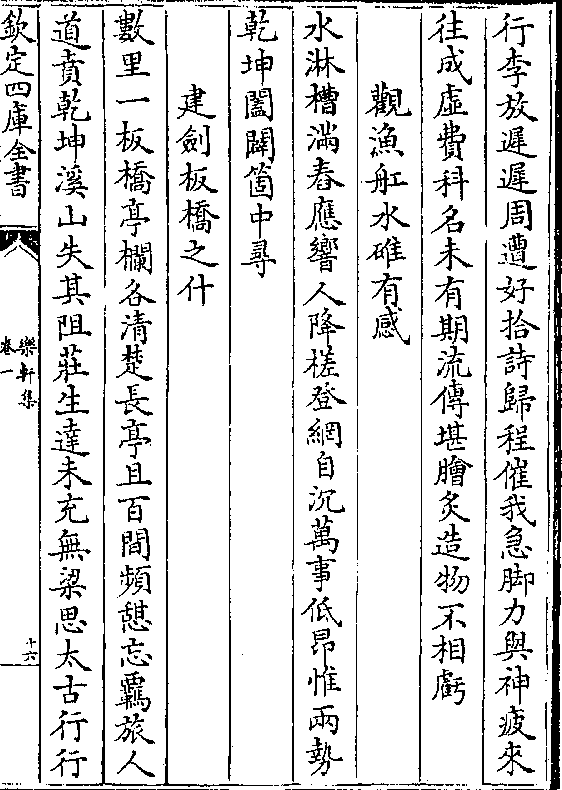 行李放遲遲周遭好拾詩歸程催我急脚力與神疲來
往成虛費科名未有期流傳堪膾炙造物不相虧
觀漁舡水碓有感
水淋槽滿舂應響人降槎登網自沉萬事低昂惟兩勢
乾坤闔闢箇中尋
建劍板橋之什
數里一板橋亭欄各清楚長亭且百間頻憩忘羈旅人
道賁乾坤溪山失其阻莊生達未充無梁思太古行行
欽定四庫全書
樂軒集
卷一
十六